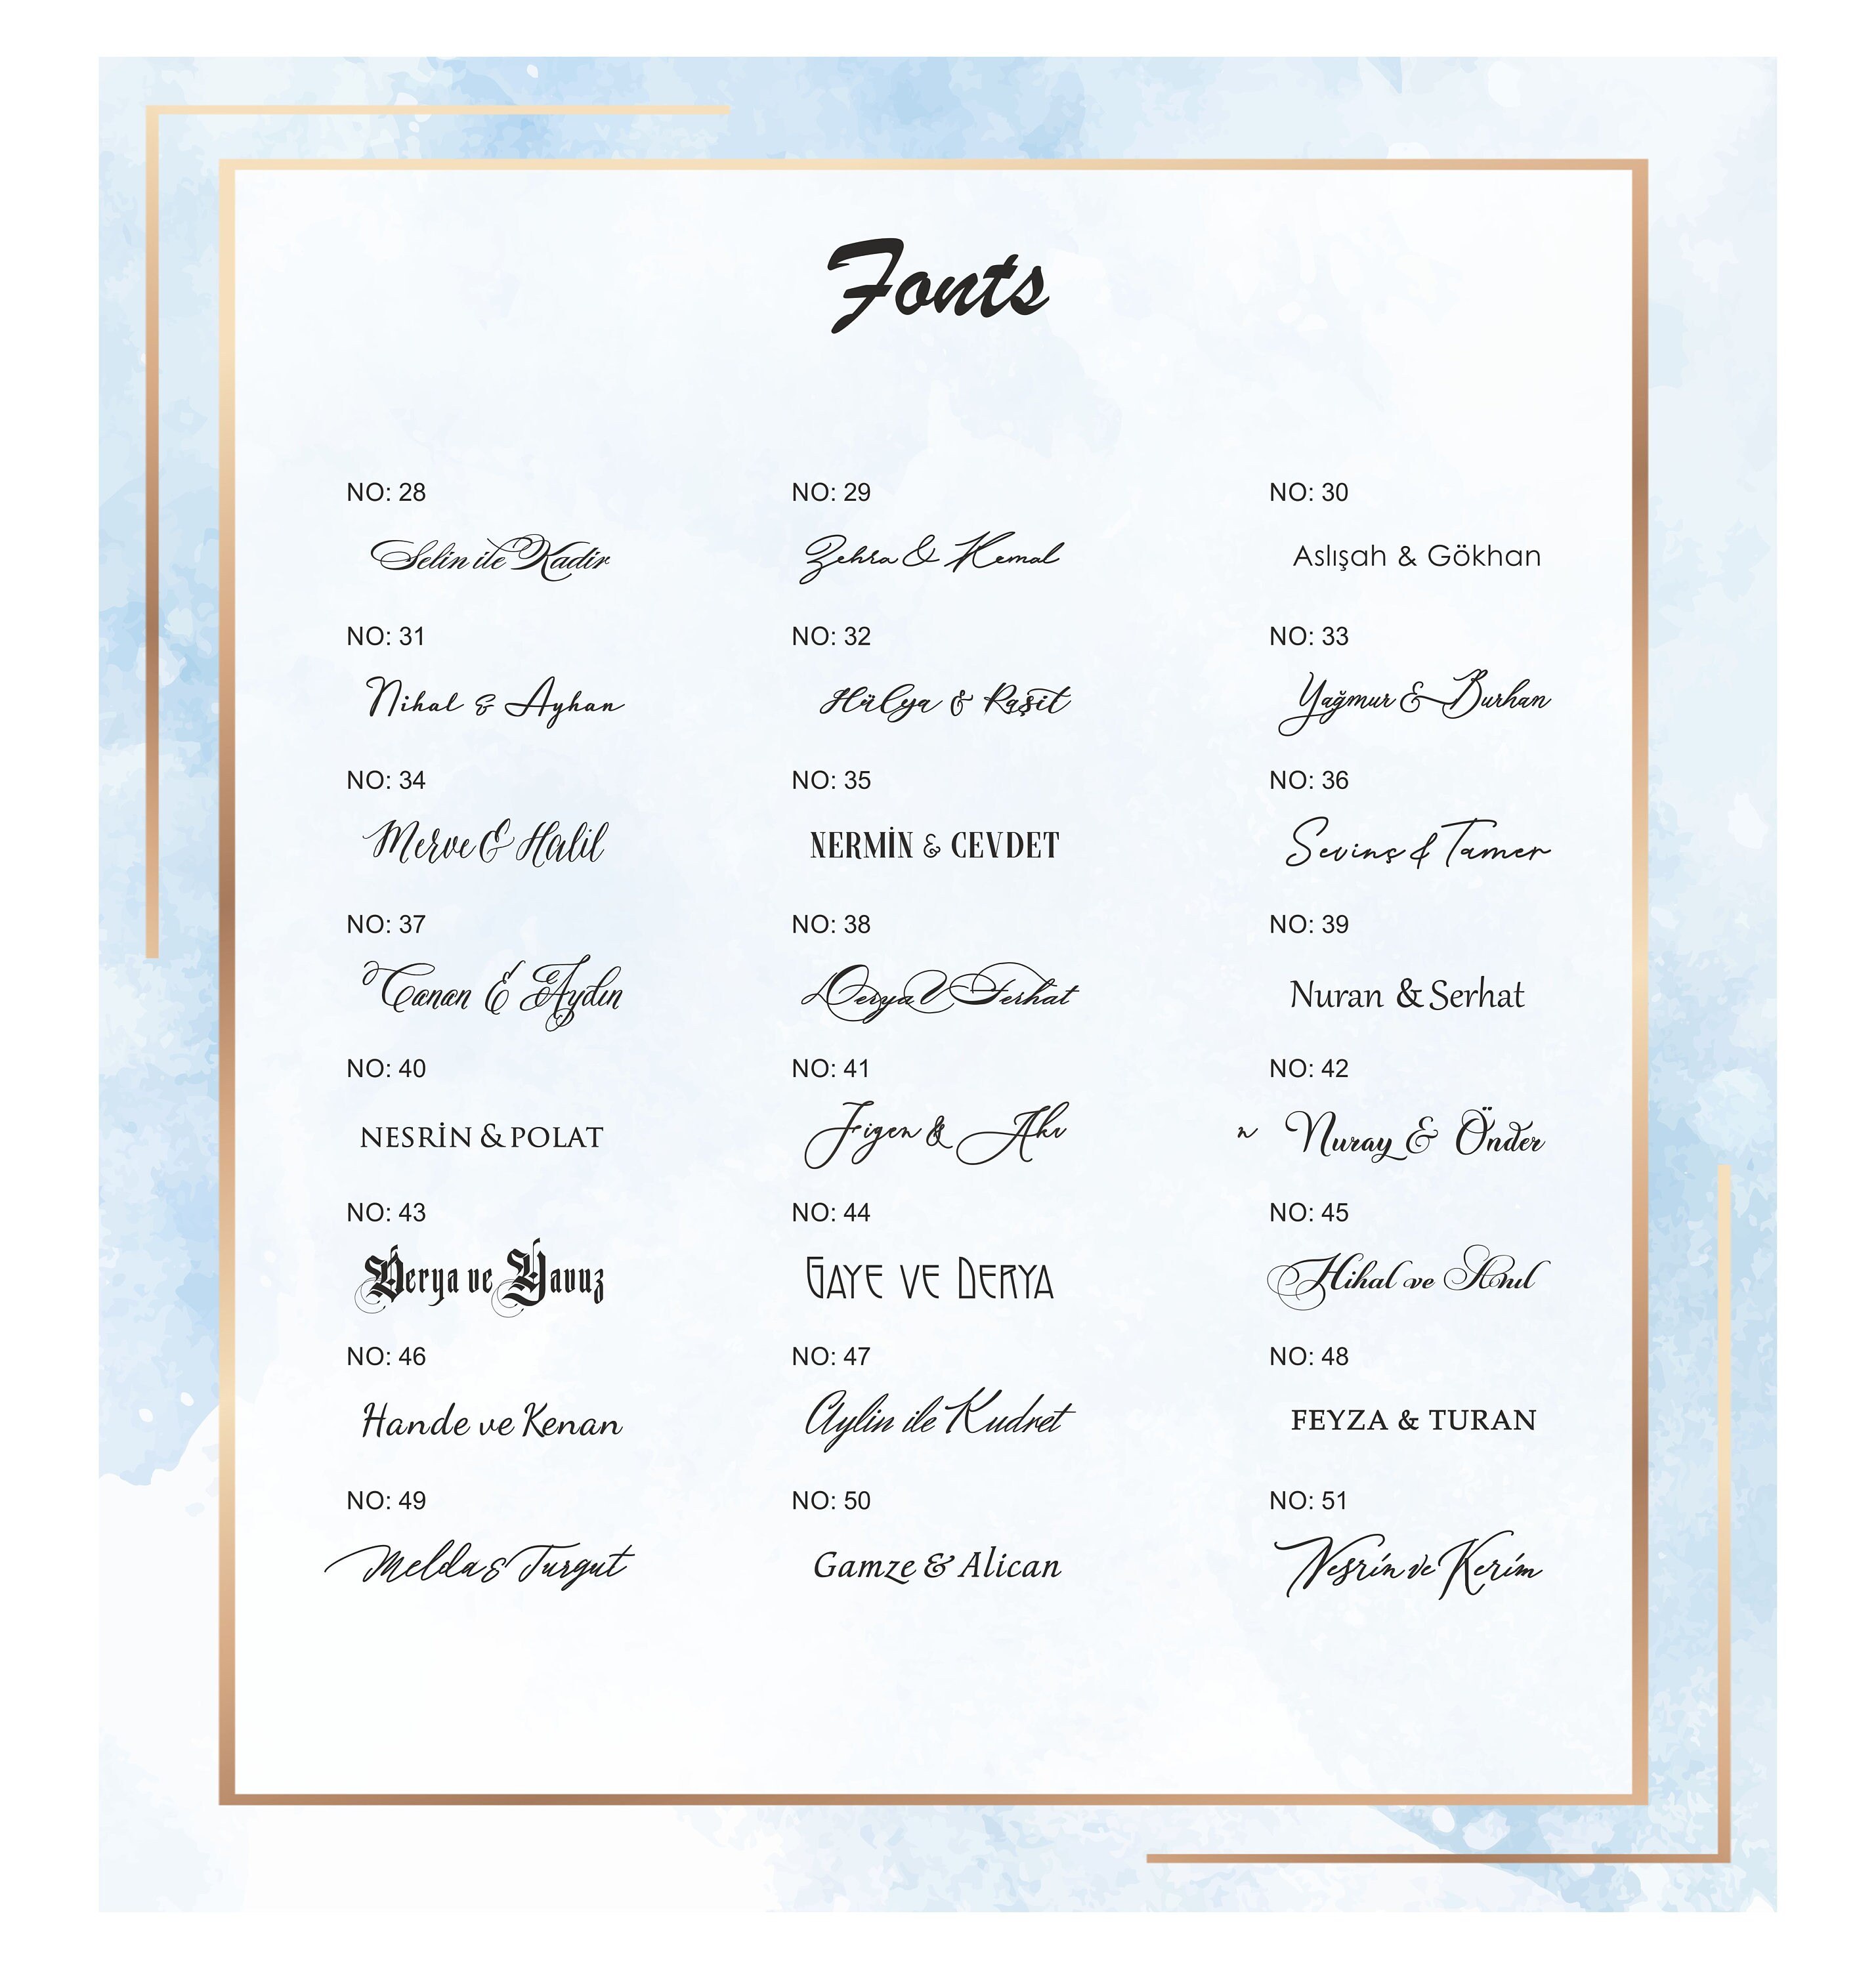 Fonts
NO: 28
NO: 29
NO: 30
Selin ile Kadir
Zehra & Kemal
Aslışah & Gökhan
NO: 31
NO: 32
NO: 33
Nihal & Ayhan
Hülya & Raşit
Yağmur & Burhan
NO: 34
NO: 35
NO: 36
Merve & Halil
NERMİN & CEVDET
Sevinç & Tamer
NO: 37
NO: 38
NO: 39
Canan & Aydın
Derya & Ferhat
Nuran & Serhat
NO: 40
NO: 41
NO: 42
NESRİN & POLAT
Figen & Akı
n Nuray & Önder
NO: 43
NO: 44
NO: 45
Derya ve Yavuz
GAYE VE DERYA
Hihal ve Anıl
NO: 46
NO: 47
NO: 48
Hande ve Kenan
Aylin ile Kudret
FEYZA & TURAN
NO: 49
NO: 50
NO: 51
Melda & Turgut
Gamze & Alican
Nesrin ve Kerim